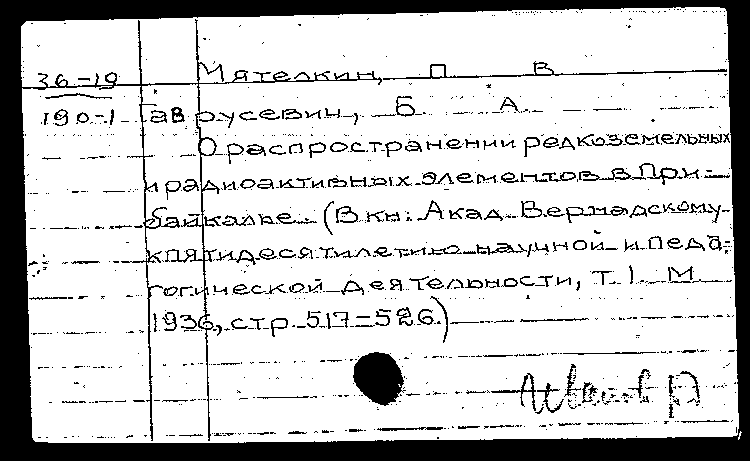 36-19 Мятелкин, П В
190-1 Гаврусевич, Б А
О распространении редкоземельных
и радиоактивных элементов в При-
байкалье. (В кн: Акад. Вернадскому
к пятидесятилетию научной и педа-
гогической деятельности, т. 1. М
1936, стр. 517-526.)
Иванов